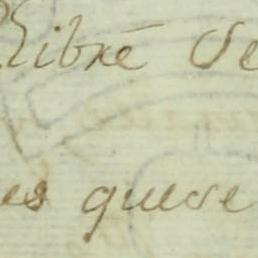 Libre de
es que se